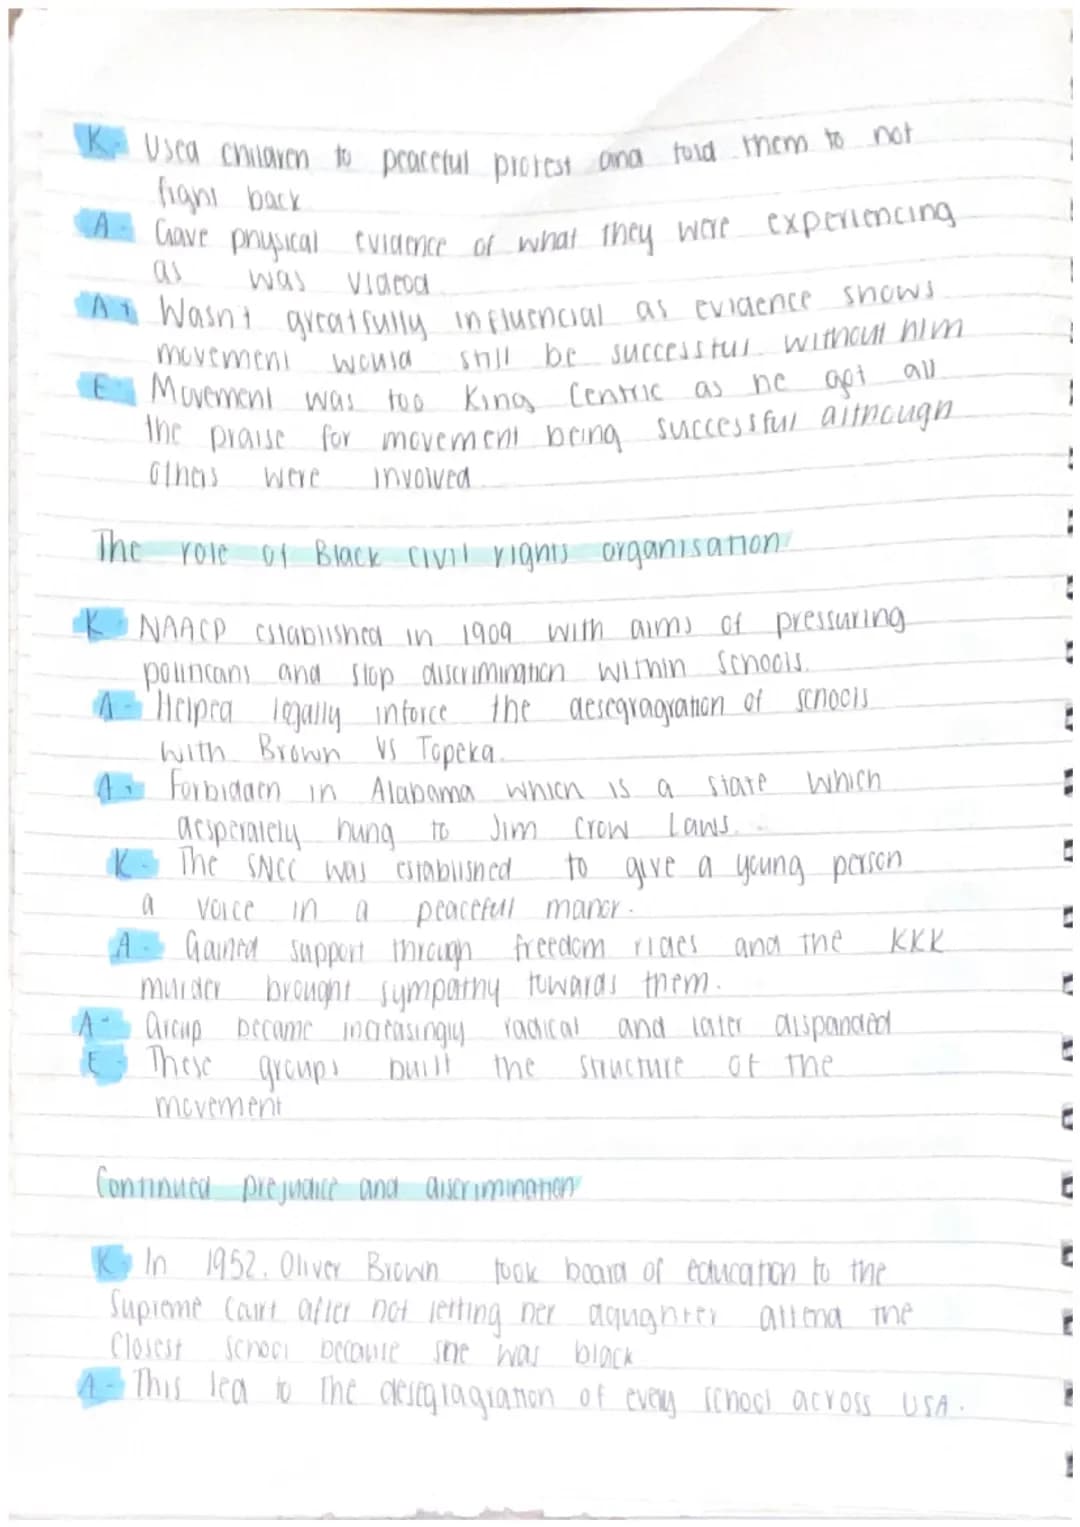 K- Used children to peaceful protest and told them to not
fight back
A- Gave physical evidence of what they were experiencing
as was videod
A+ Wasnt greatfully influencial as evidence shows
movement would still be successful without him
E- Movement was too King Centric as he got all
the praise for movement being successful although
others were involved
The role of Black civil rights organisation
K- NAACP established in 1909 with aims of pressuring
politicans and stop discrimination within schools.
A- Helped legally inforce the desegragration of schools
with Brown VS Topeka.
A+ Forbidden in Alabama which is a state which
desperately hung to Jim Crow Laws.
K- The SNCC was established to give a young person
a voice in a peaceful manor.
A- Gained support through freedom rides and the KKK
murder brought sympathy towards them.
A+ Group became increasingly radical and later dispanded
E- These groups built the structure of the
movement
Continued prejudice and discrimination
K- In 1952, Oliver Brown took board of education to the
Supreme Court after not letting her daughter attend the
closest school because she was black
A- This led to the desegragration of every school across USA.